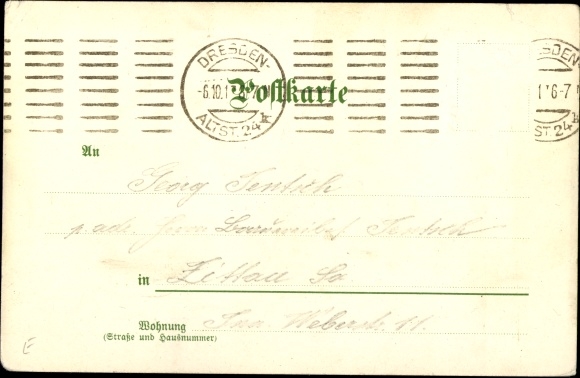 DRESDEN-
DRESDEN-
-6.10.1
1 6-7 N
Postkarte
ALTST. 24 k
ST. 24 k
An
Georg Jentsch
p. adr. Herrn Jentsch
in Zittau Sa
Wohnung Inn. Weberstr. 11.
(Straße und Hausnummer)
E